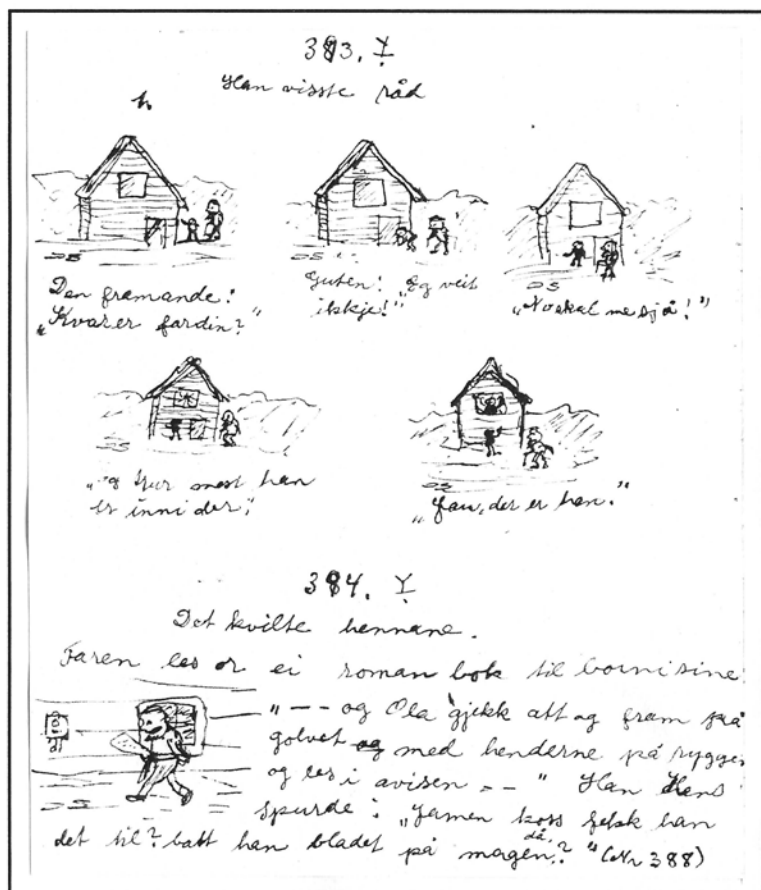 383. Y
Han visste råd
h
Den framande:
„Kvar er fardin?"
Guten: „Eg veit
ikkje!"
„No skal me sjå!"
er inni der."
„Jau, der er han."
384. Y
Det kvilte hennane.
Faren les or ei roman bok til borni sine:
"-- og Ola gjekk att og fram på
golvet og med henderne på ryggen
og les i avisen --" Han Hans
spurde: „Jamen koss fekk han
det til? batt han bladet på magen då?" (Nr 388)